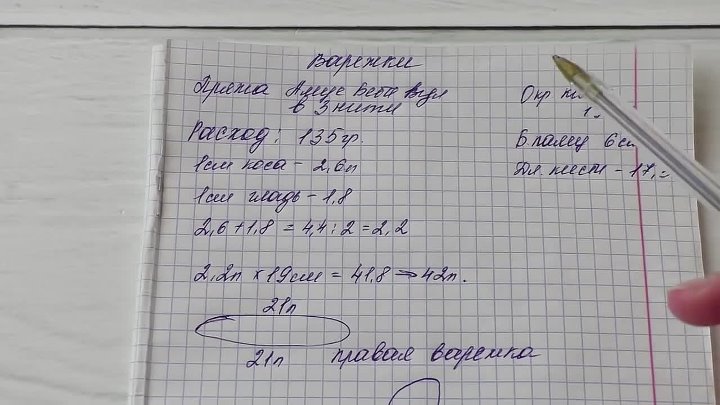 Варежки
Пряжа Ализе Беби вул
в 3 нити
Расход: 135гр.
1см коса - 2,6п
1см гладь - 1,8
2,6 + 1,8 = 4,4 : 2 = 2,2
2,2п × 19см = 41,8 ⇒ 42п.
21п
21п
правая варежка
Окр
Б.палец 6см
Дл. кисти - 17,